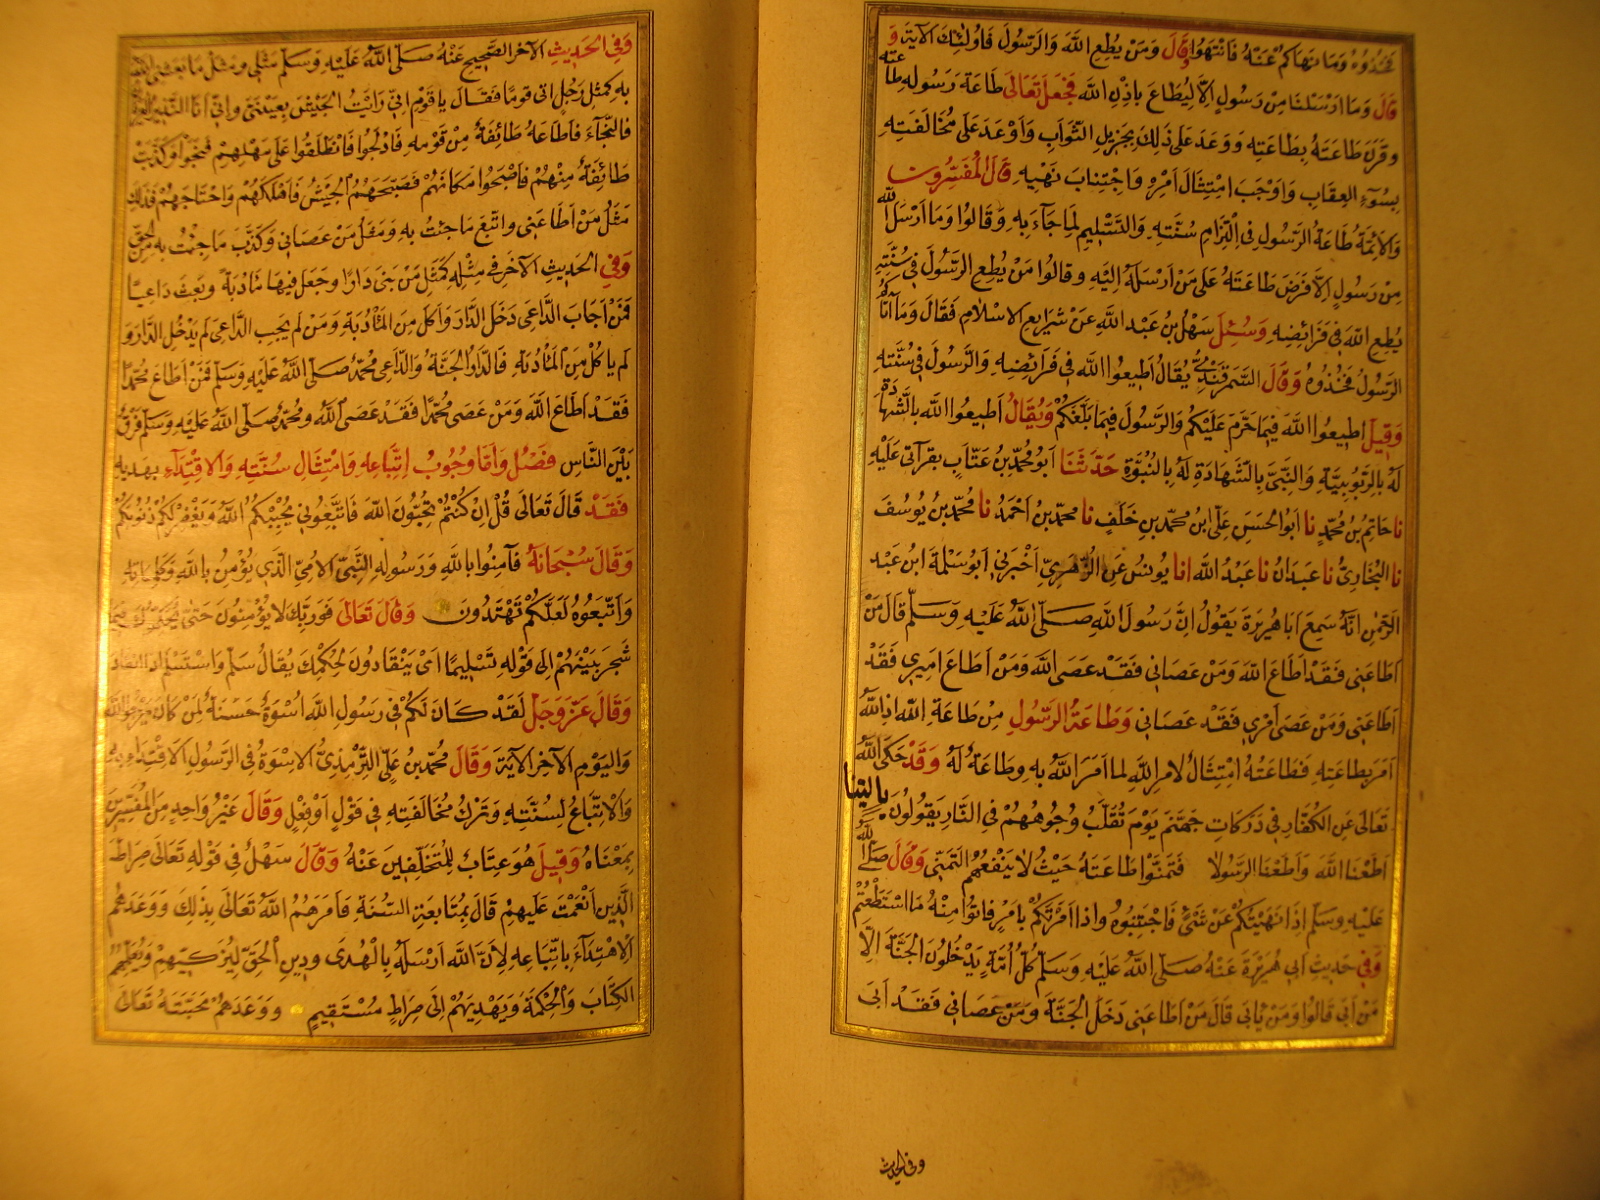 فخذوه وما نهاكم عنه فانتهوا وقال ومن يطع الله والرسول فاولئك الآية و
قال وما ارسلنا من رسول الا ليطاع باذن الله فجعل تعالى طاعة رسوله طاعته
وقرن طاعته بطاعته ووعد على ذلك بجزيل الثواب واوعد على مخالفته
بسوء العقاب واوجب امتثال امره واجتناب نهيه قال المفسرون
والائمة طاعة الرسول في التزام سنته والتسليم لما جاء به وقالوا وما ارسل الله
من رسول الا فرض طاعته على من ارسله اليه وقالوا من يطع الرسول في سنته
يطع الله في فرائضه وسئل سهل بن عبد الله عن شرايع الاسلام فقال وما آتاكم
الرسول فخذوه وقال السمرقندي يقال اطيعوا الله في فرائضه والرسول في سنته
وقيل اطيعوا الله فيما حرم عليكم والرسول فيما بلغكم ويقال اطيعوا الله بالشهادة
له بالربوبية والنبي بالشهادة له بالنبوة حدثنا ابو محمد بن عتاب بقرآتي عليه
نا حاتم بن محمد نا ابو الحسن علي بن محمد بن خلف نا محمد بن احمد نا محمد بن يوسف
نا البخاري نا عبدان نا عبد الله انا يونس عن الزهري اخبرني ابو سلمة ابن عبد
الرحمن انه سمع ابا هريرة يقول ان رسول الله صلى الله عليه وسلم قال من
اطاعني فقد اطاع الله ومن عصاني فقد عصى الله ومن اطاع اميري فقد
اطاعني ومن عصى امري فقد عصاني وطاعة الرسول من طاعة الله اذ الله
امر بطاعته فطاعته امتثال لامر الله لما امر الله به وطاعة له وقد حكى الله
تعالى عن الكفار في دركات جهنم يوم تقلب وجوههم في النار يقولون ياليتنا
اطعنا الله واطعنا الرسولا فتمنوا طاعته حيث لا ينفعهم التمني وقال صلى الله
عليه وسلم اذا نهيتكم عن شئ فاجتنبوه واذا امرتكم بامر فاتوا منه ما استطعتم
وفي حديث ابي هريرة عنه صلى الله عليه وسلم كل امة يدخلون الجنة الا
من ابى قالوا ومن يابى قال من اطاعني دخل الجنة ومن عصاني فقد ابى
وفي الحديث
وفي الحديث الآخر الصحيح عنه صلى الله عليه وسلم مثلي ومثل ما بعثني الله
به كمثل رجل اتى قوما فقال يا قوم اني رايت الجيش بعيني واني انا النذير العريان
فالنجاء فاطاعه طائفة من قومه فادلجوا فانطلقوا على مهلهم فنجوا وكذبت
طائفة منهم فاصبحوا مكانهم فصبحهم الجيش فاهلكهم واجتاحهم فذلك
مثل من اطاعني واتبع ما جئت به ومثل من عصاني وكذب ما جئت به من الحق
وفي الحديث الآخر في مثله كمثل من بنى دارا وجعل فيها مادبة وبعث داعيا
فمن اجاب الداعي دخل الدار واكل من المادبة ومن لم يجب الداعي لم يدخل الدار و
لم ياكل من المادبة فالدار الجنة والداعي محمد صلى الله عليه وسلم فمن اطاع محمدا
فقد اطاع الله ومن عصى محمدا فقد عصى الله ومحمد صلى الله عليه وسلم فرق
بين الناس فصل واما وجوب اتباعه وامتثال سنته والاقتداء بهديه
فقد قال تعالى قل ان كنتم تحبون الله فاتبعوني يحببكم الله ويغفر لكم ذنوبكم
وقال سبحانه فآمنوا بالله ورسوله النبي الامي الذي يؤمن بالله وكلماته
واتبعوه لعلكم تهتدون وقال تعالى فوربك لا يؤمنون حتى يحكموك فيما
شجر بينهم الى قوله تسليما اى ينقادون لحكمك يقال سلم واستسلم اذا انقاد
وقال عز وجل لقد كان لكم في رسول الله اسوة حسنة لمن كان يرجو الله
واليوم الآخر الآية وقال محمد بن علي الترمذي الاسوة في الرسول الاقتداء به
والاتباع لسنته وترك مخالفته في قول او فعل وقال غير واحد من المفسرين
بمعناه وقيل هو عتاب للمتخلفين عنه وقال سهل في قوله تعالى صراط
الذين انعمت عليهم قال بمتابعة السنة فامرهم الله تعالى بذلك ووعدهم
الاهتداء باتباعه لان الله ارسله بالهدى ودين الحق ليزكيهم ويعلمهم
الكتاب والحكمة ويهديهم الى صراط مستقيم ووعدهم محبته تعالى